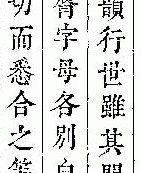 韻行世雖其
字母各別
切而悉合之